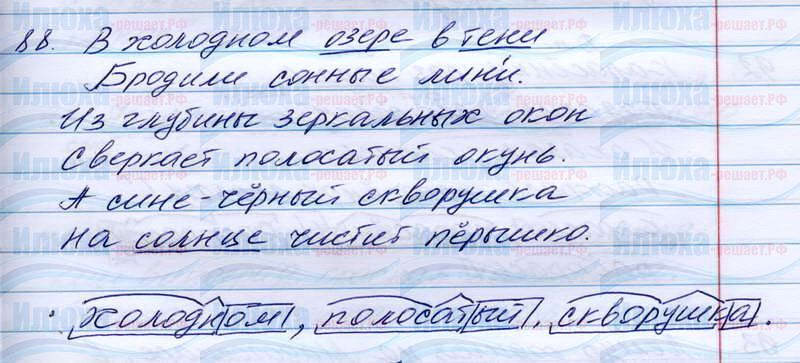 88. В холодном озере в тени
Бродили сонные лини.
Из глубины зеркальных окон
Сверкает полосатый окунь.
А сине-чёрный скворушка
На солнце чистит пёрышко.
холодном, полосатый, скворушка.